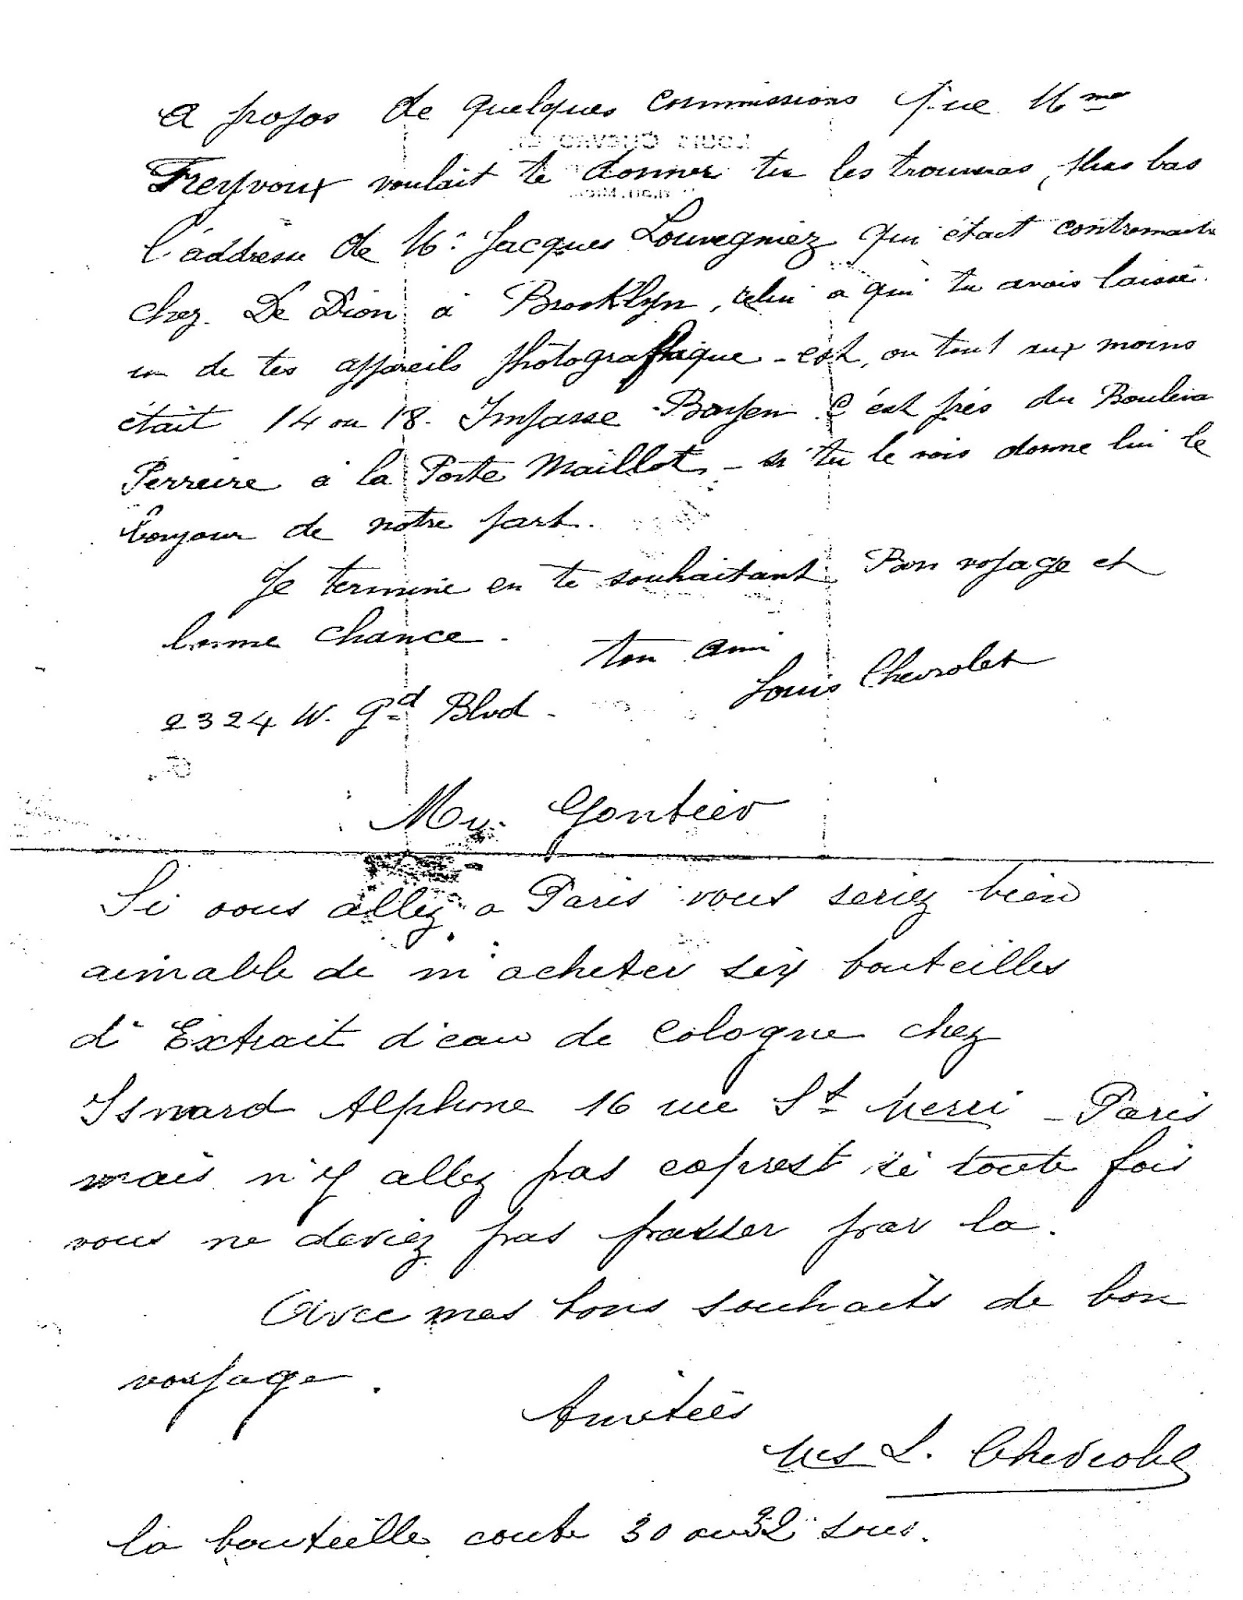 a propos de quelques commissions que Mme
Freyvoux voulait te donner tu les trouveras plus bas
l'addresse de Mr Jacques Louvegniez qui était contremaitre
chez De Dion à Brooklyn, celui a qui tu avais laissé
un de tes appareils photographique - est, ou tout aux moins
était 14 ou 18. Impasse Bayen C'est près du Bouleva
Perreire à la Porte Maillot, - si tu le vois donne lui le
bonjour de notre part.
Je termine en te souhaitant Bon voyage et
bonne chance.
ton ami
Louis Chevrolet
2324 W. Gd Blvd.
Mr. Gontier
Si vous allez a Paris vous seriez bien
aimable de m'acheter six bouteilles
d'Extrait d'eau de Cologne chez
Isnard Alphone 16 rue St Merri - Paris
mais n'y allez pas exprest si toute fois
vous ne deviez pas passer par la.
Avec mes bons souhaits de bon
voyage.
Amitiés
Mrs L. Chevrolet
la bouteille coute 30 ou 32 sous.